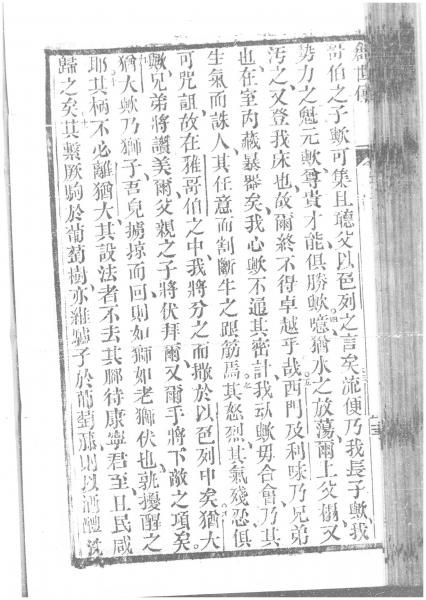 創世傳
哥伯之子歟可集且聽父以色列之言矣流便乃我長子歟我
勢力之魁元歟尊貴才能俱勝歟噫猶水之放蕩爾上父榻又
汚之又登我床也故爾終不得卓越乎哉西門及利味乃兄弟
也在室內藏暴器矣我心歟不通其密計我劦歟毋合會乃其
生氣而誅人其任意而割斷牛之跟筋焉其怒烈其氣殘忍俱
可咒詛故在雅哥伯之中我將分之而撒於以色列中矣猶大
歟兄弟將讚美爾父親之子將伏拜爾又爾手將下敵之項矣
猶大歟乃獅子吾兒擄掠而回則如獅如老獅伏也孰擾醒之
耶其柄不必離猶大其設法者不去其腳待康寧君至且民咸
歸之矣其繫厥駒於葡萄樹亦維驢子於葡萄 則以酒醴洗